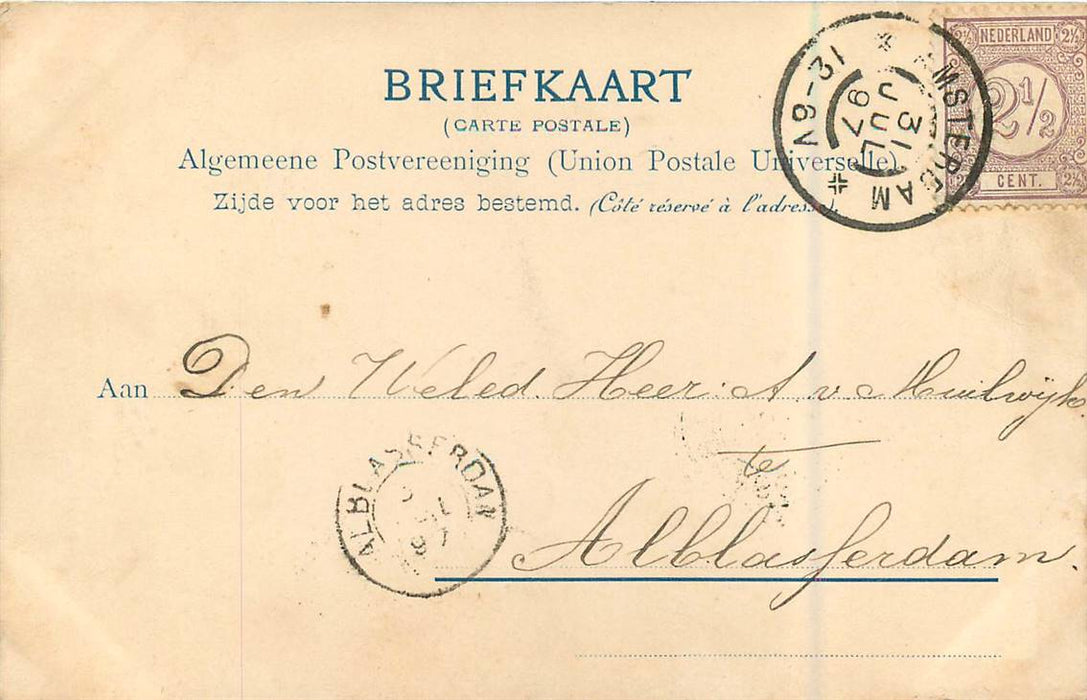 BRIEFKAART
(CARTE POSTALE)
Algemeene Postvereeniging (Union Postale Universelle).
Zijde voor het adres bestemd. (Côté réservé à l'adresse).
NEDERLAND
2½ 2½
2½
CENT. 2½
AMSTERDAM
12-6V
31 JUL 97
Aan Den Weled. Heer: A. v. Muilwijk
te
Alblasserdam.
ALBLASSERDAM
97